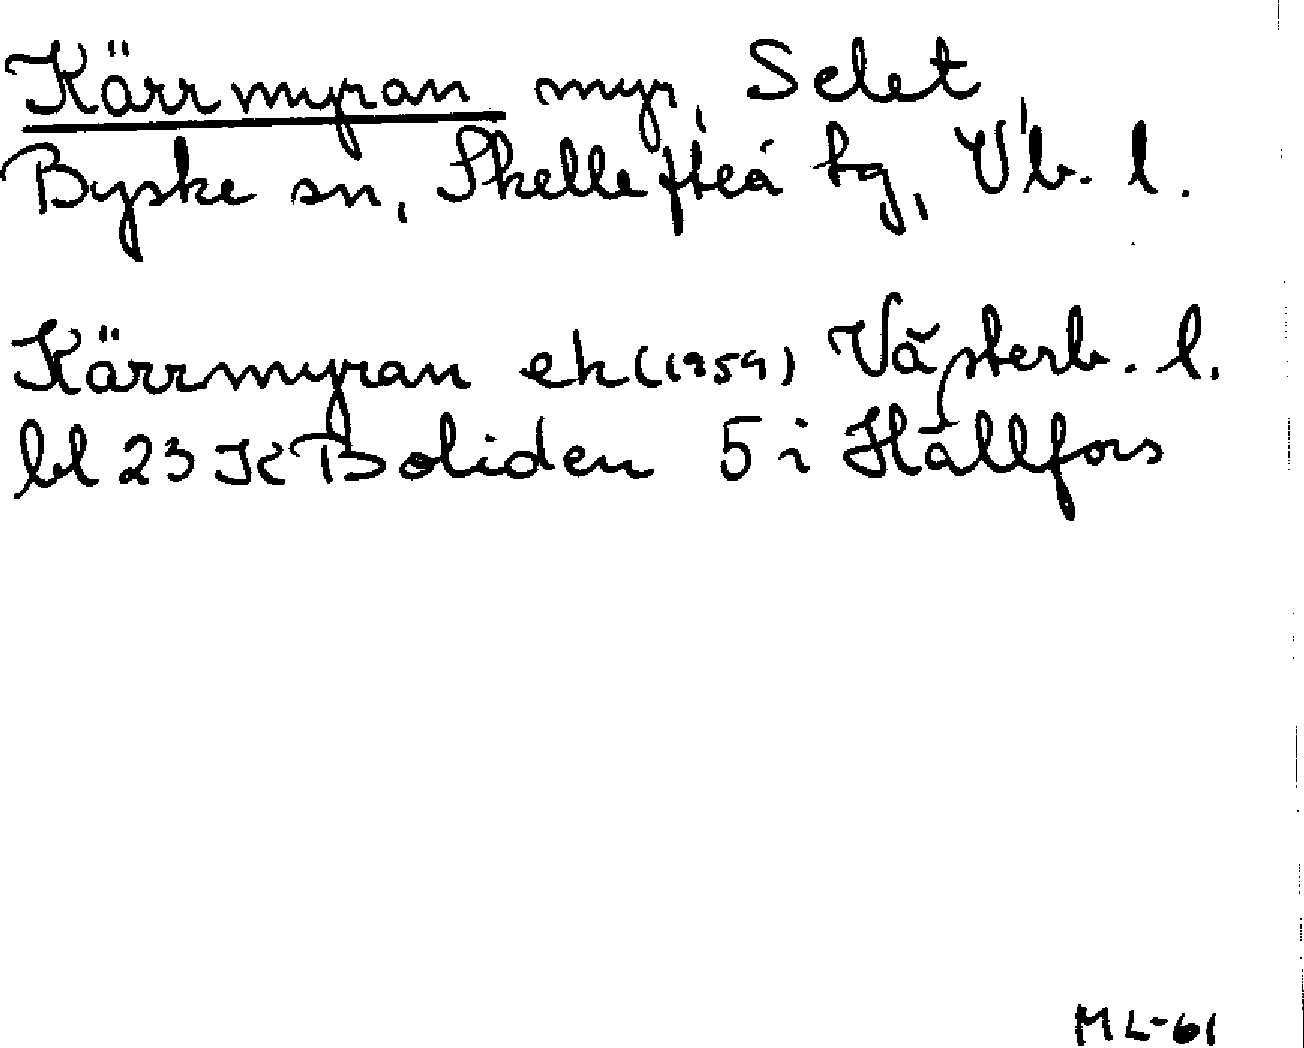 Kärrmyran myr, Selet,
Byske sn, Skellefteå tg, Vb. l.
Kärrmyran ek (1959) Västerb. l.
bl 23 K Boliden 5 i Hällfors
ML-61